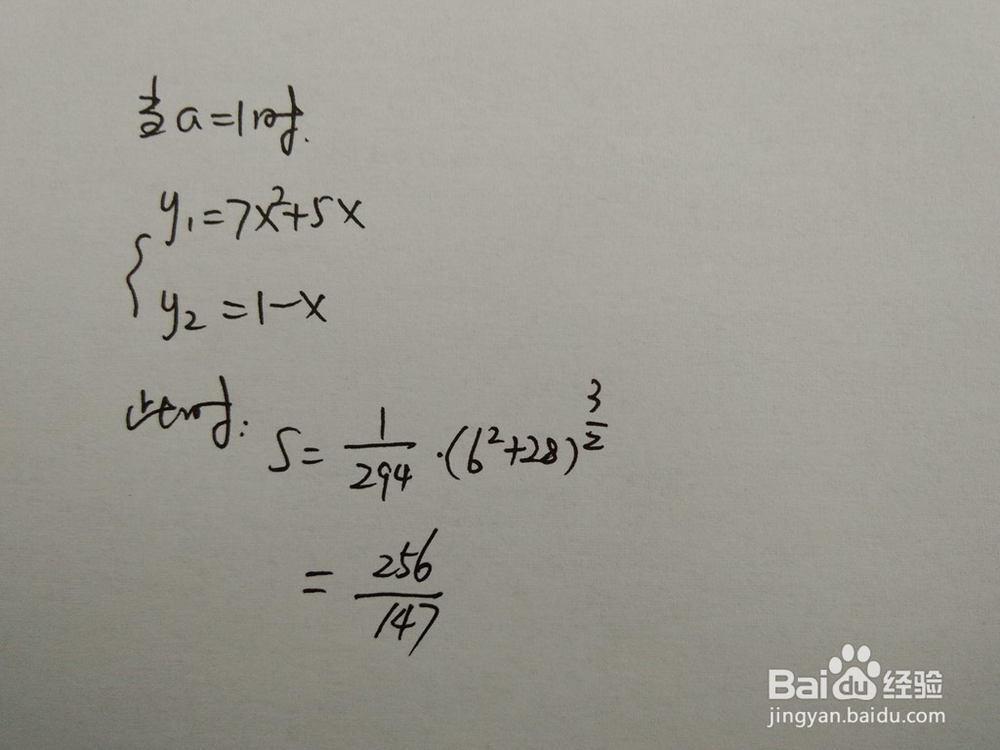 当a=1时.
y₁=7x²+5x
y₂=1-x
此时: S=1/294·(6²+28)^(3/2)
=256/147
Baidu经验
jingyan.baidu.com